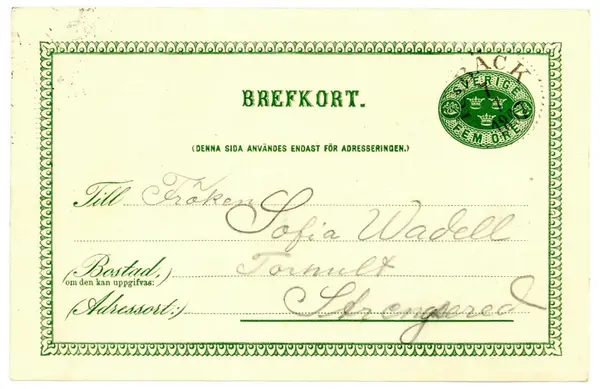 BACK
SVERIGE
FEM ÖRE
BREFKORT.
(DENNA SIDA ANVÄNDES ENDAST FÖR ADRESSERINGEN.)
Till Fröken
Sofia Wadell
(Bostad,)
om den kan uppgifvas:
(Adressort:)